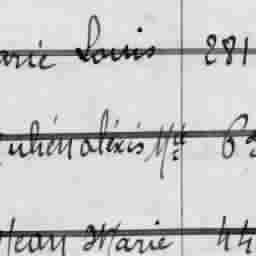 arie Louis 281
Julien alexis Md 63
Jean Marie 44